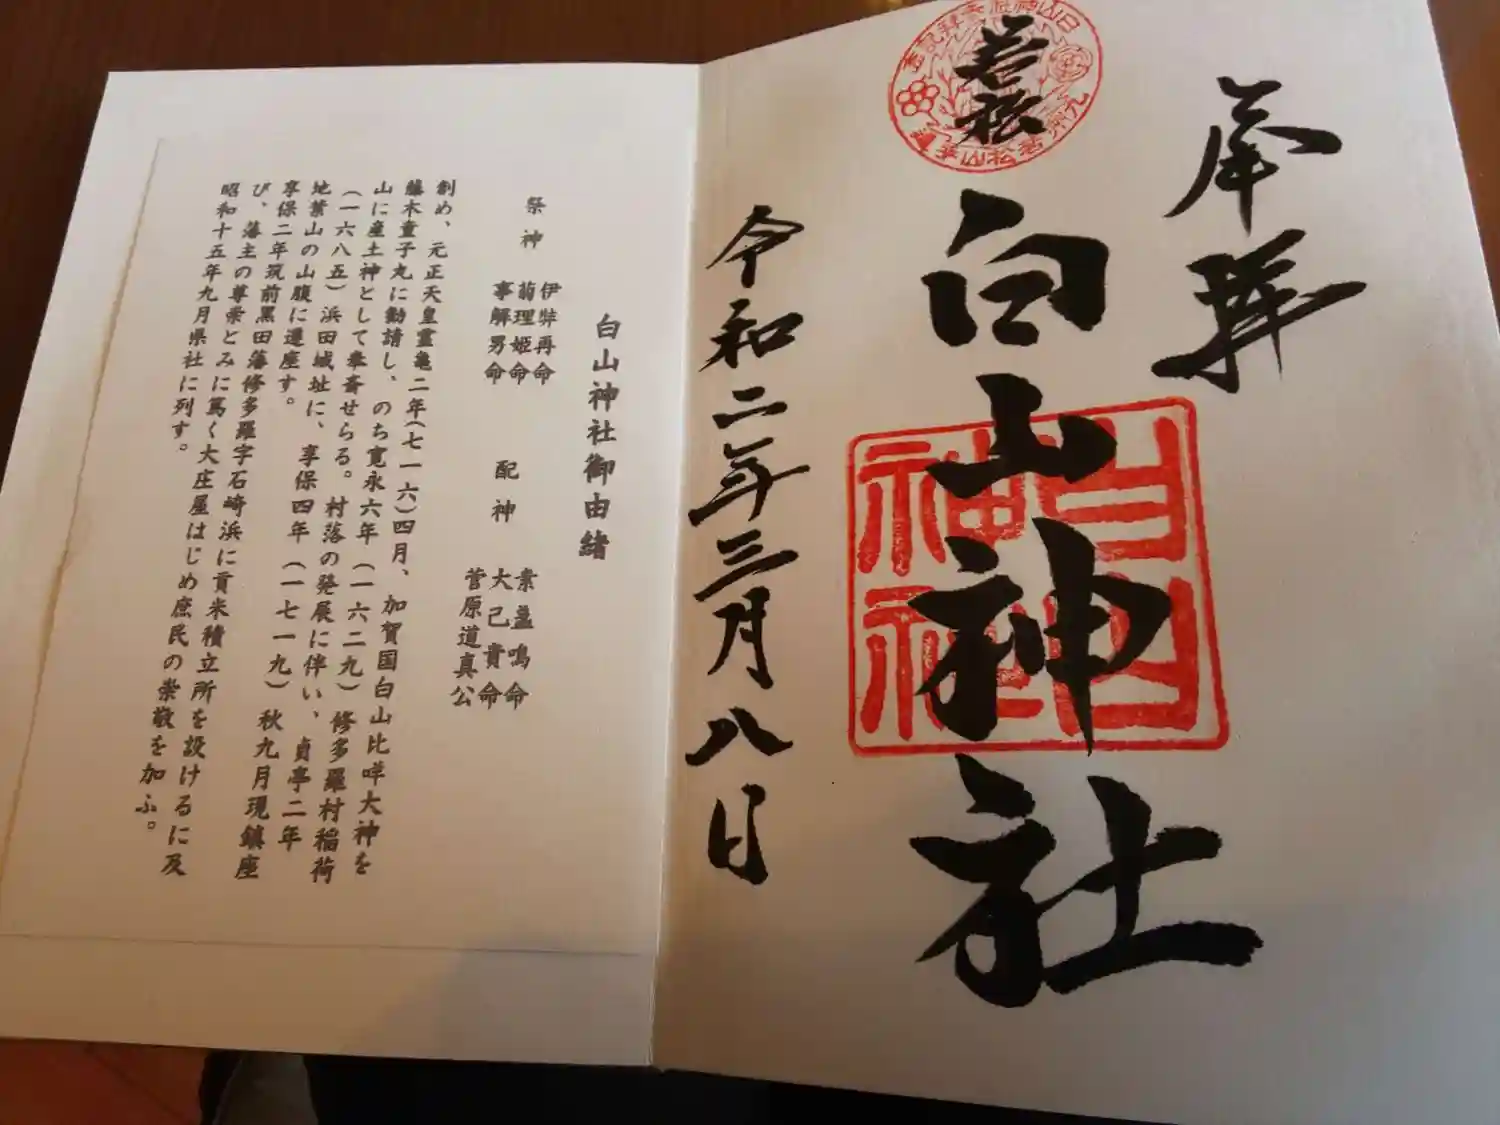 奉拝
若松
九州若松山手通
白山神社
白山神社
令和二年三月八日
白山神社御由緒
祭神 伊弉再命
菊理姫命
事解男命
配神 素盞鳴命
大己貴命
菅原道真公
創め、元正天皇霊亀二年(七一六)四月、加賀国白山比咩大神を
藤木童子丸に勧請し、のち寛永六年(一六二九)修多羅村稲荷
山に産土神として奉斎せらる。村落の発展に伴い、貞亭二年
(一六八五)浜田城址に、享保四年(一七一九)秋九月現鎮座
地葉山の山腹に遷座す。
享保二年筑前黒田藩修多羅字石崎浜に貢米積立所を設けるに及
び、藩主の尊崇とみに篤く大庄屋はじめ庶民の崇敬を加ふ。
昭和十五年九月県社に列す。